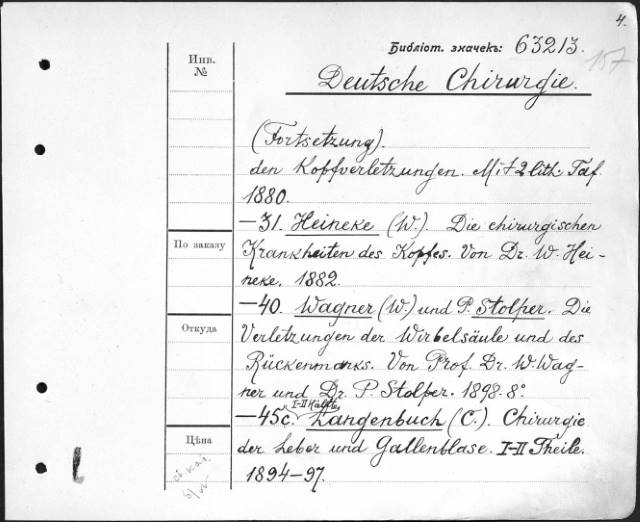 4.
Библіот. значекъ: 63213.
157
Инв.
№
Deutsche Chirurgie.
(Fortsetzung).
den Kopfverletzungen. Mit 2 lith. Taf.
1880.
—31. Heineke (W.). Die chirurgischen
По заказу
Krankheiten des Kopfes. Von Dr. W. Hei-
neke. 1882.
—40. Wagner (W.) und P. Stolper. Die
Откуда
Verletzungen der Wirbelsäule und des
Rückenmarks. Von Prof. Dr. W. Wag-
ner und Dr. P. Stolper. 1898. 8°.
I-II Hälfte
—45c. Langenbuch (C.). Chirurgie
Цѣна
der Leber und Gallenblase. I-II Theile.
1894-97.